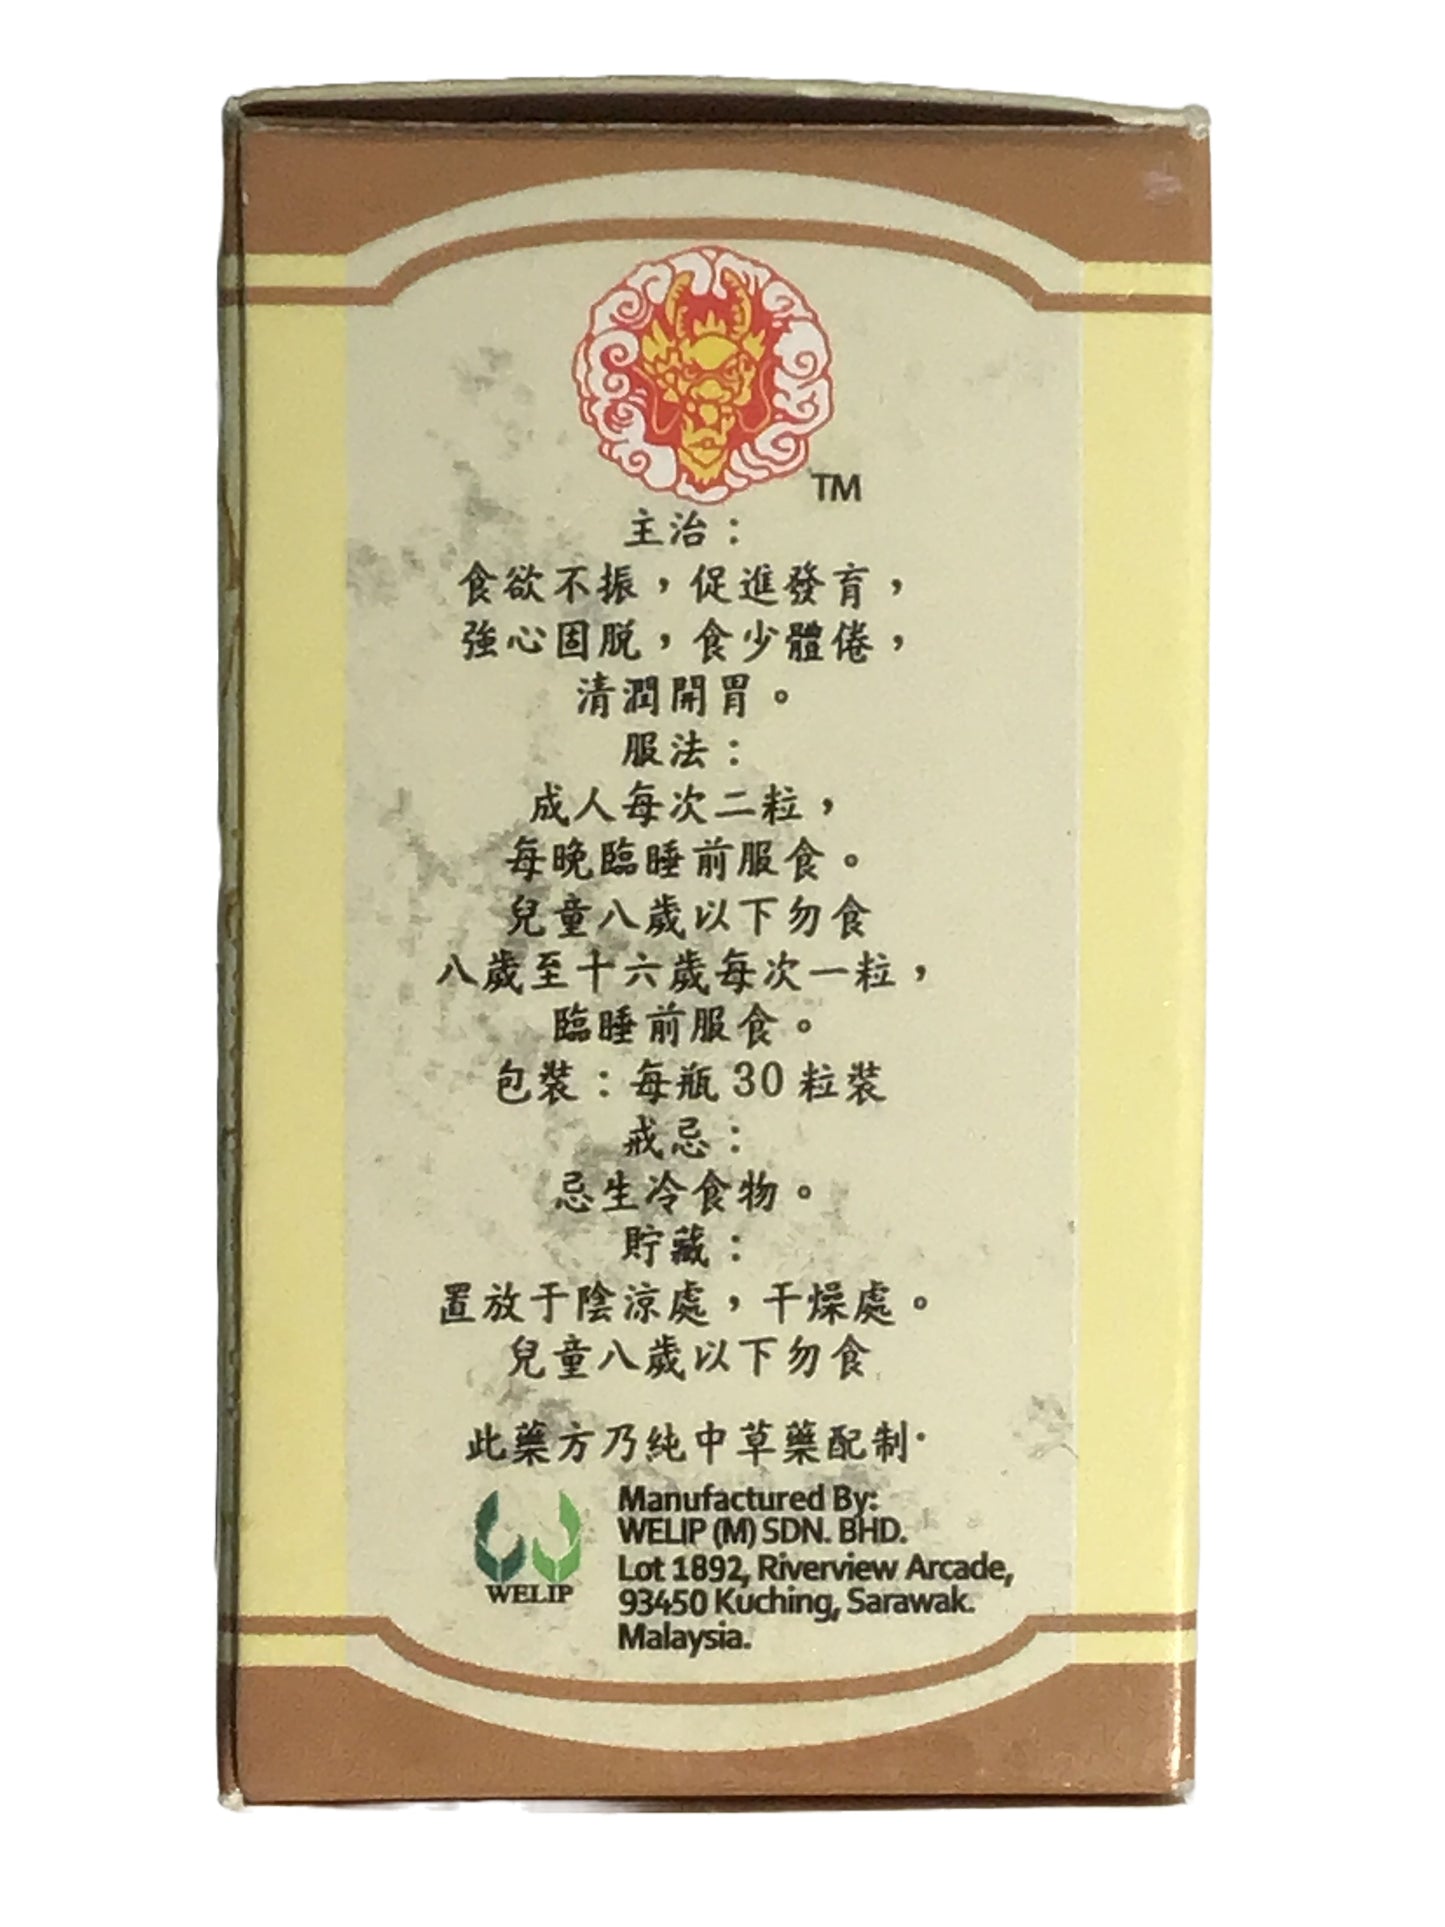 TM
主治：
食欲不振，促進發育，
強心固脱，食少體倦，
清潤開胃。
服法：
成人每次二粒，
每晚臨睡前服食。
兒童八歲以下勿食
八歲至十六歲每次一粒，
臨睡前服食。
包裝：每瓶30粒裝
戒忌：
忌生冷食物。
貯藏：
置放于陰涼處，干燥處。
兒童八歲以下勿食
此藥方乃純中草藥配制·
WELIP
Manufactured By:
WELIP (M) SDN. BHD.
Lot 1892, Riverview Arcade,
93450 Kuching, Sarawak.
Malaysia.